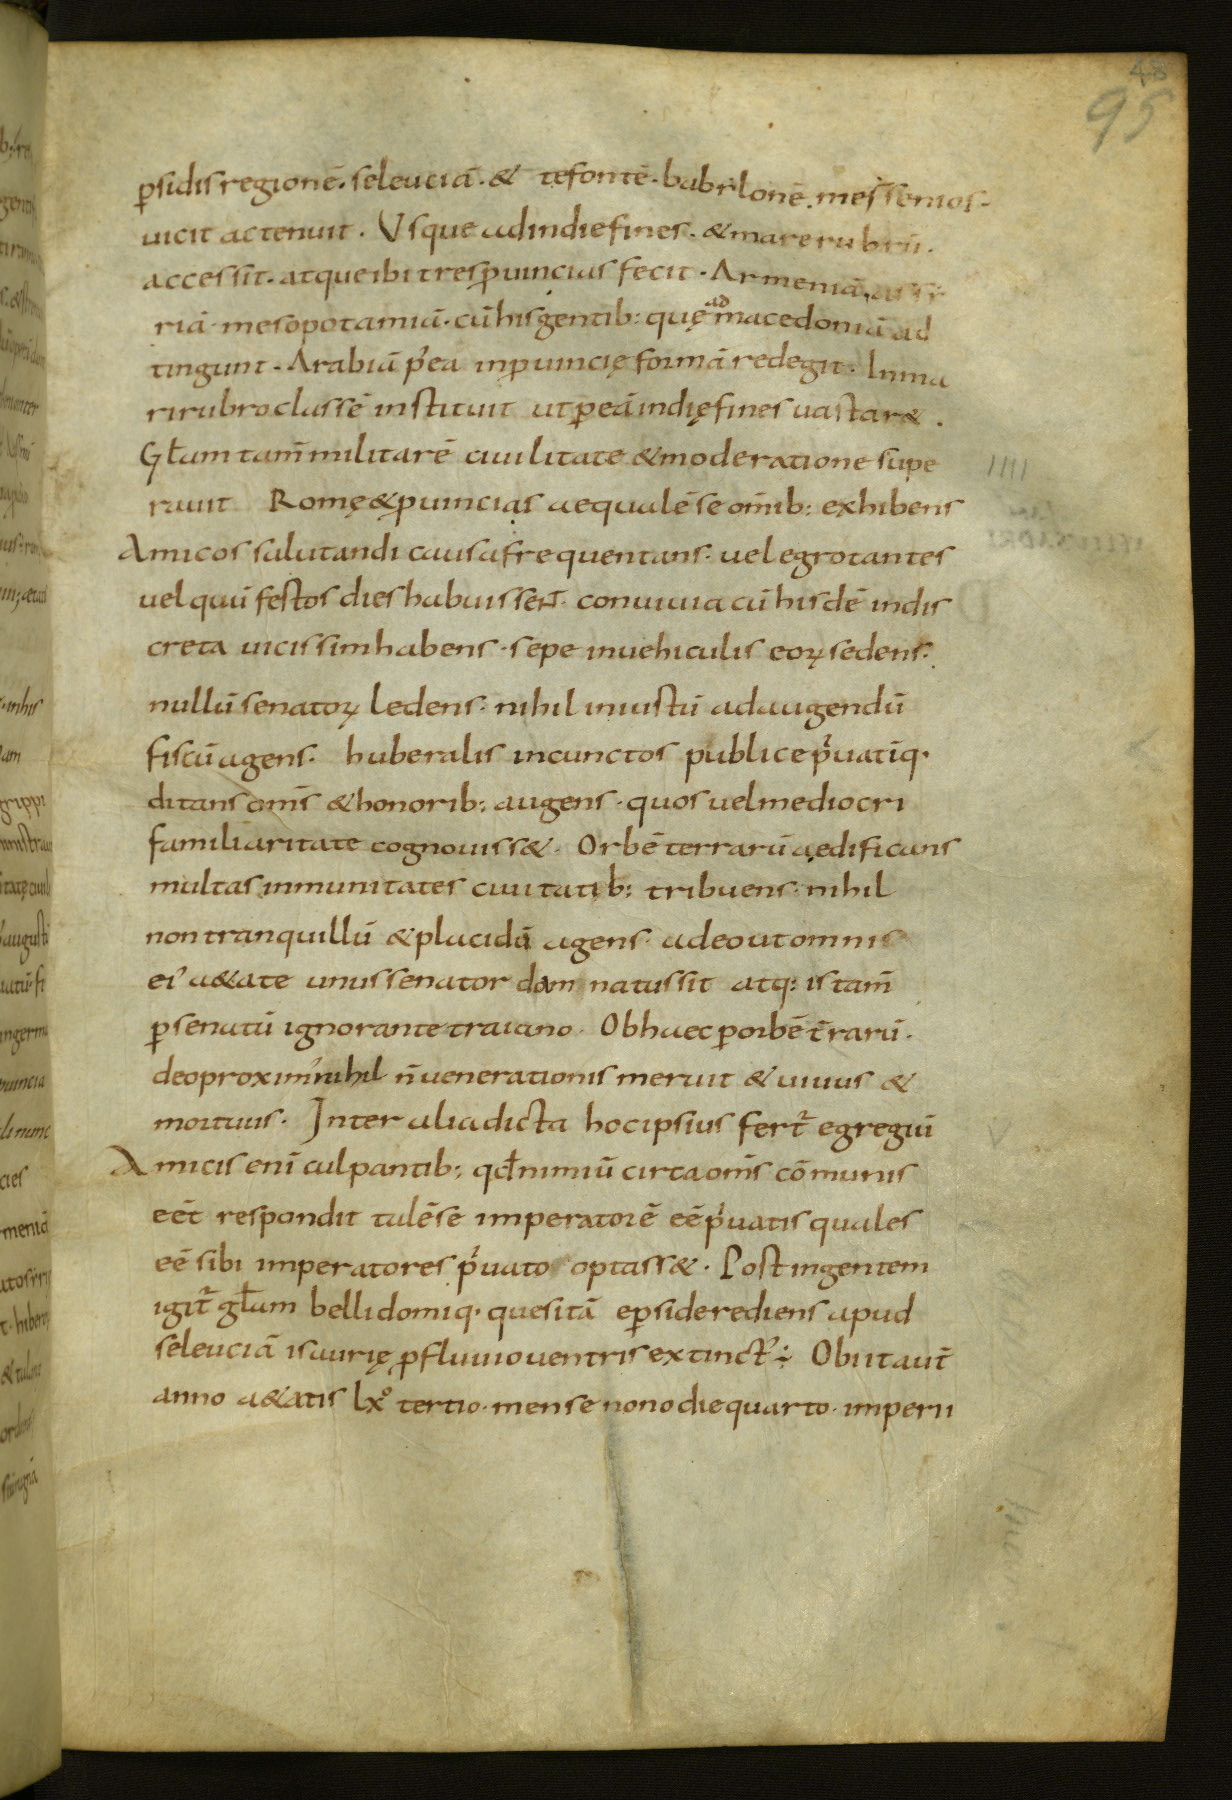 48
95
p̲sidis regionē. seleuciā. & tesfontē. babilonē. messenios.
uicit ac tenuit. Usque ad indie fines. & mare rubrū.
accessit. atque ibi tres p̲uincias fecit. Armeniā, assi
riā mesopotamiā. cū his gentib: quę ad macedoniā ad
tingunt. Arabiā p̓ea in p̲uincię formā redegit. In ma
ri rubro classē instituit ut p̲ eā indię fines uastar&.
Gƚam tam̄ militarē ciuilitate & moderatione supe
rauit Romę & p̲uincias aequalē se om̄ib: exhibens
Amicos salutandi causa frequentans. uel egrotantes
uel quū festos dies habuisseꝵ. conuiuia cū hisdē indis
creta uicissim habens. sepe in uehiculis eoꝝ sedens.
nullū senatoꝝ ledens. nihil iniustū ad augendū
fiscū agens. huberalis in cunctos publice p̓uatīq·
ditans om̄s & honorib: augens. quos uel mediocri
familiaritate cognouiss&. Orbē terrarū aedificans
multas inmunitates ciuitatib: tribuens. nihil
non tranquillū & placidū agens. adeo ut omni
ei' a&ate unus senator damnatus sit atq: is tam̄
p̲ senatū ignorante traiano. Ob haec p̲ orbē t̄rarū.
deo proxim' nihil n̄ uenerationis meruit & uiuus &
mortuus. Inter alia dicta hoc ipsius fert̄ egregiū
Amicis enī culpantib: qđ nimiū circa om̄s cōmunis
eēt respondit talē se imperatorē eē p̓uatis quales
eē sibi imperatores p̓uato optass&. Post ingentem
igit̄ gƚam belli domiq· quesitā e p̲side rediens apud
seleuciā isaurię p̲fluuio uentris extinct' ÷ Obiit aut̄
anno a&atis lx° tertio. mense nono die quarto. imperii